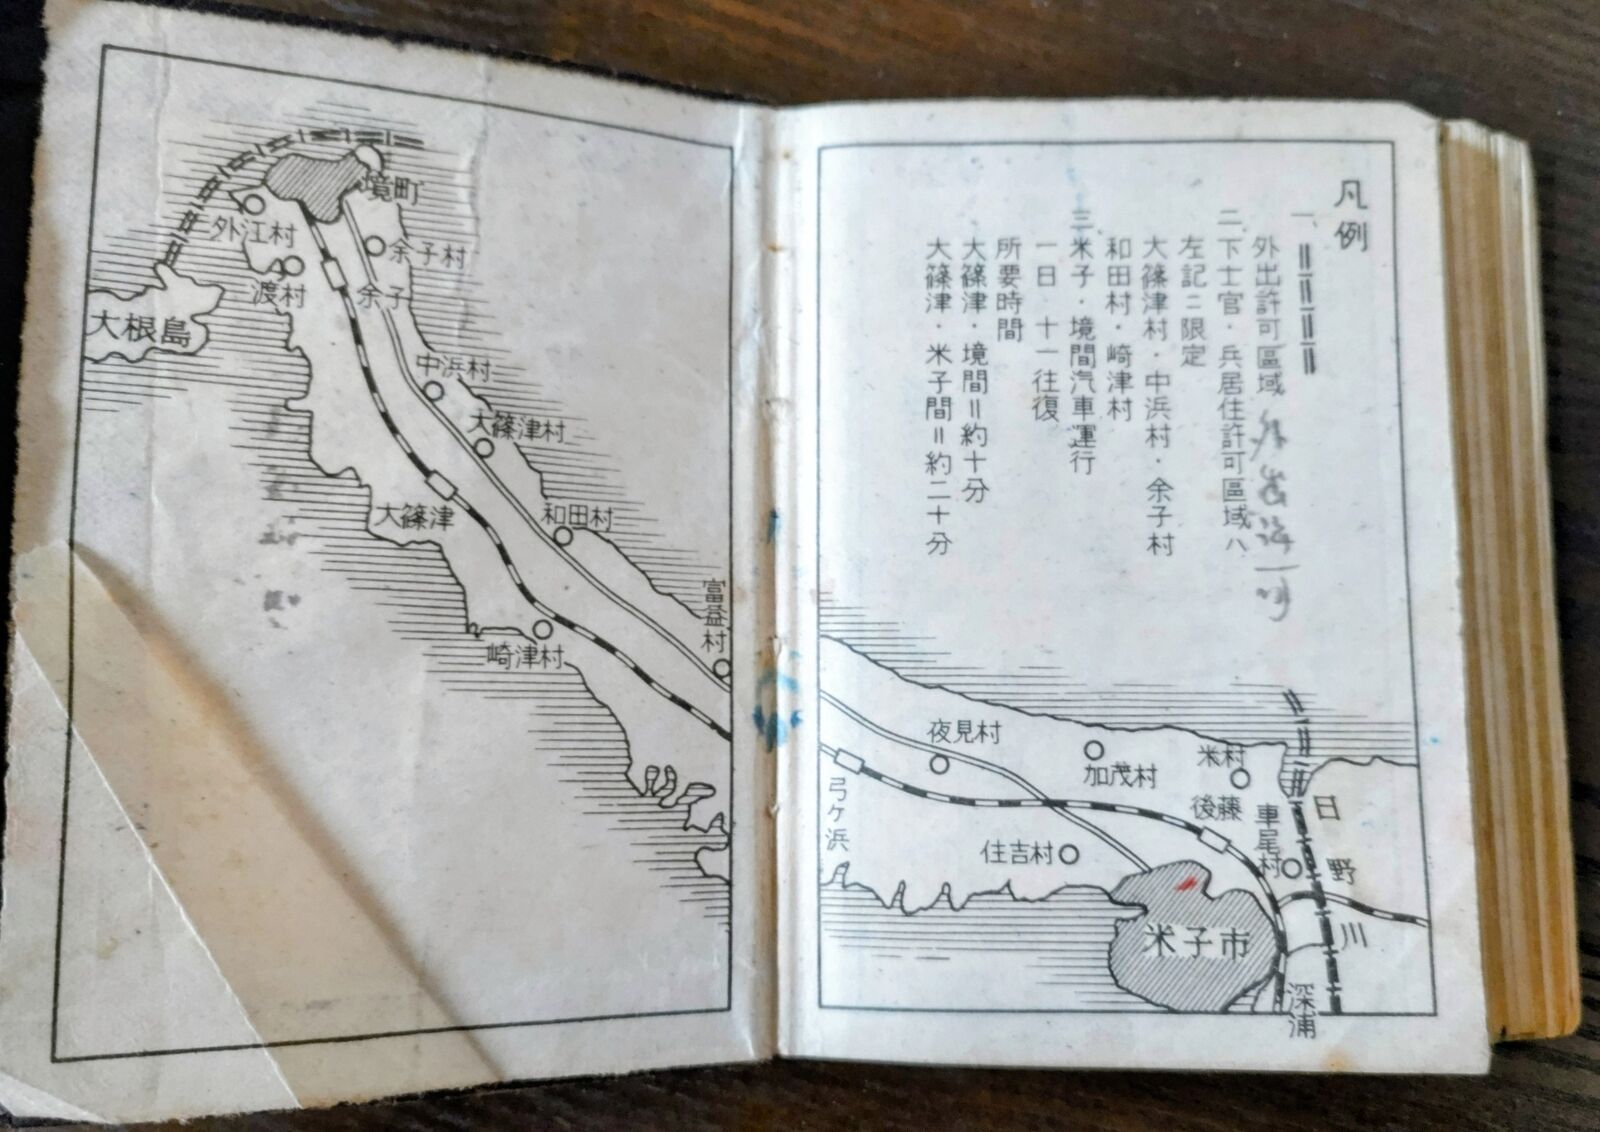 凡例
一、
外出許可區域
二、下士官・兵居住許可區域ハ
左記ニ限定
大篠津村・中浜村・余子村
和田村・崎津村
三、米子・境間汽車運行
一日 十一往復
所要時間
大篠津・境間＝約十分
大篠津・米子間＝約二十分
境町
外江村
余子村
渡村
余子
大根島
中浜村
大篠津村
大篠津
和田村
富益村
崎津村
夜見村
加茂村
米村
後藤
車尾村
日野川
弓ヶ浜
住吉村
米子市
深浦